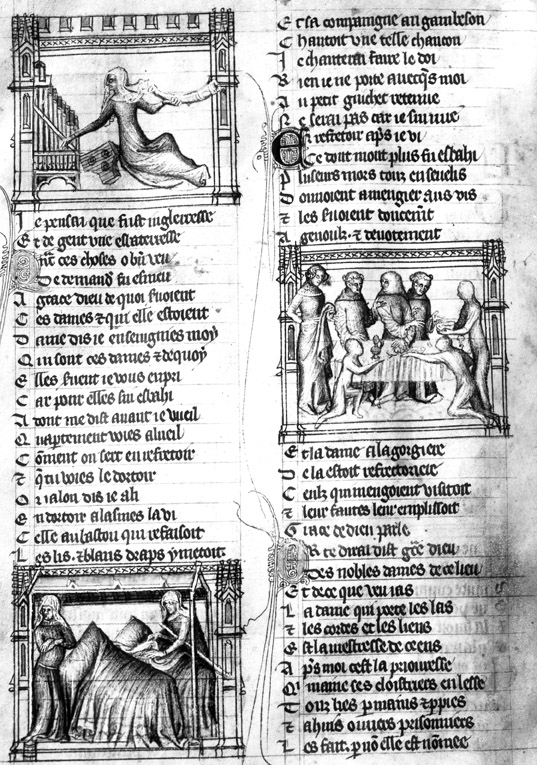 Je pensai que fust ingleresse
Et de gent vne esbateresse
ces choses o bn veu
De demand fu esmeu
A grace dieu de quoi suoient
Ces dames & qui elle estoient
Dame dis ie enseignies moy
Qui sont ces dames & dequoy
Elles suent ie vous enpri
Car pour elles sui esbahi
Adont me dist auant ie vueil
Quaptement voies alueil
Coment on sert en refretoir
& q tu voies le dortoir
Or ialon dis ie
En dortoir alasmes la vi
Celle au baston qui refaisoit
Les lis & blans draps y metoit
Et sa compaingne au gambeson
Chantoit vne telle chancon
Je chanterai faire le doi
Rien ie ne porte auecqs moi
Au petit guichet retenue
Ne serai pas car ie sui nue
En refretoir aps ie vi
Ce dont mout plus fu esbahi
Pluseurs mors touz enseuelis
Donnoient a mengier aus vis
& les seruoient doucemt
A genoulz & deuotement
Et la dame a la gorgiere
De la estoit refrectoriere
Ceulz qui mengoient visitoit
& leur fautes leur emplissoit
Grace de dieu parle
Or te dirai dist gce dieu
Des nobles dames de ce lieu
Et de ce que veu ias
La dame qui porte les las
& les cordes et les liens
Est la mestresse de ceens
Aps moi cest la priouresse
Qi maine ses cloistriers en lesse
Touz lies p mains & p pies
& a huis ouuers prisonniers
Les fait. p uo elle est nomee